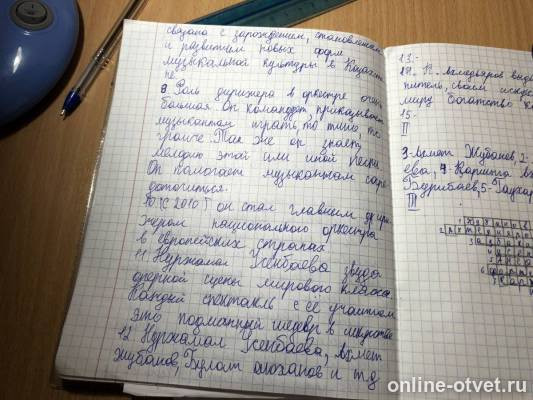 связана с зарождением, становлением
и развитием новых форм
музыкальной культуры в Казахста
не.
9. Роль дирижера в оркестре очень
большая. Он командует, приказывает
музыкантам играть, то тише, то
громче. Так же он знает
мелодию этой или иной песни.
Он помогает музыкантам сосре
доточиться.
10. С 2010 г он стал главным дири
жером национального оркестра
в европейских странах
11. Нуржамал Усенбаева звезда
оперной сцены мирового класса.
Каждый спектакль с её участием
это подлинный шедевр в искусстве
12. Нуржамал Усенбаева, Ахмет
Жубанов, Булат и т.д
13.-
14. Н.
миру богатство
15-
II
3-Ахмет Жубанов, 2-
ева, 4-Каришта
5-Гаухар
III
online-otvet.ru